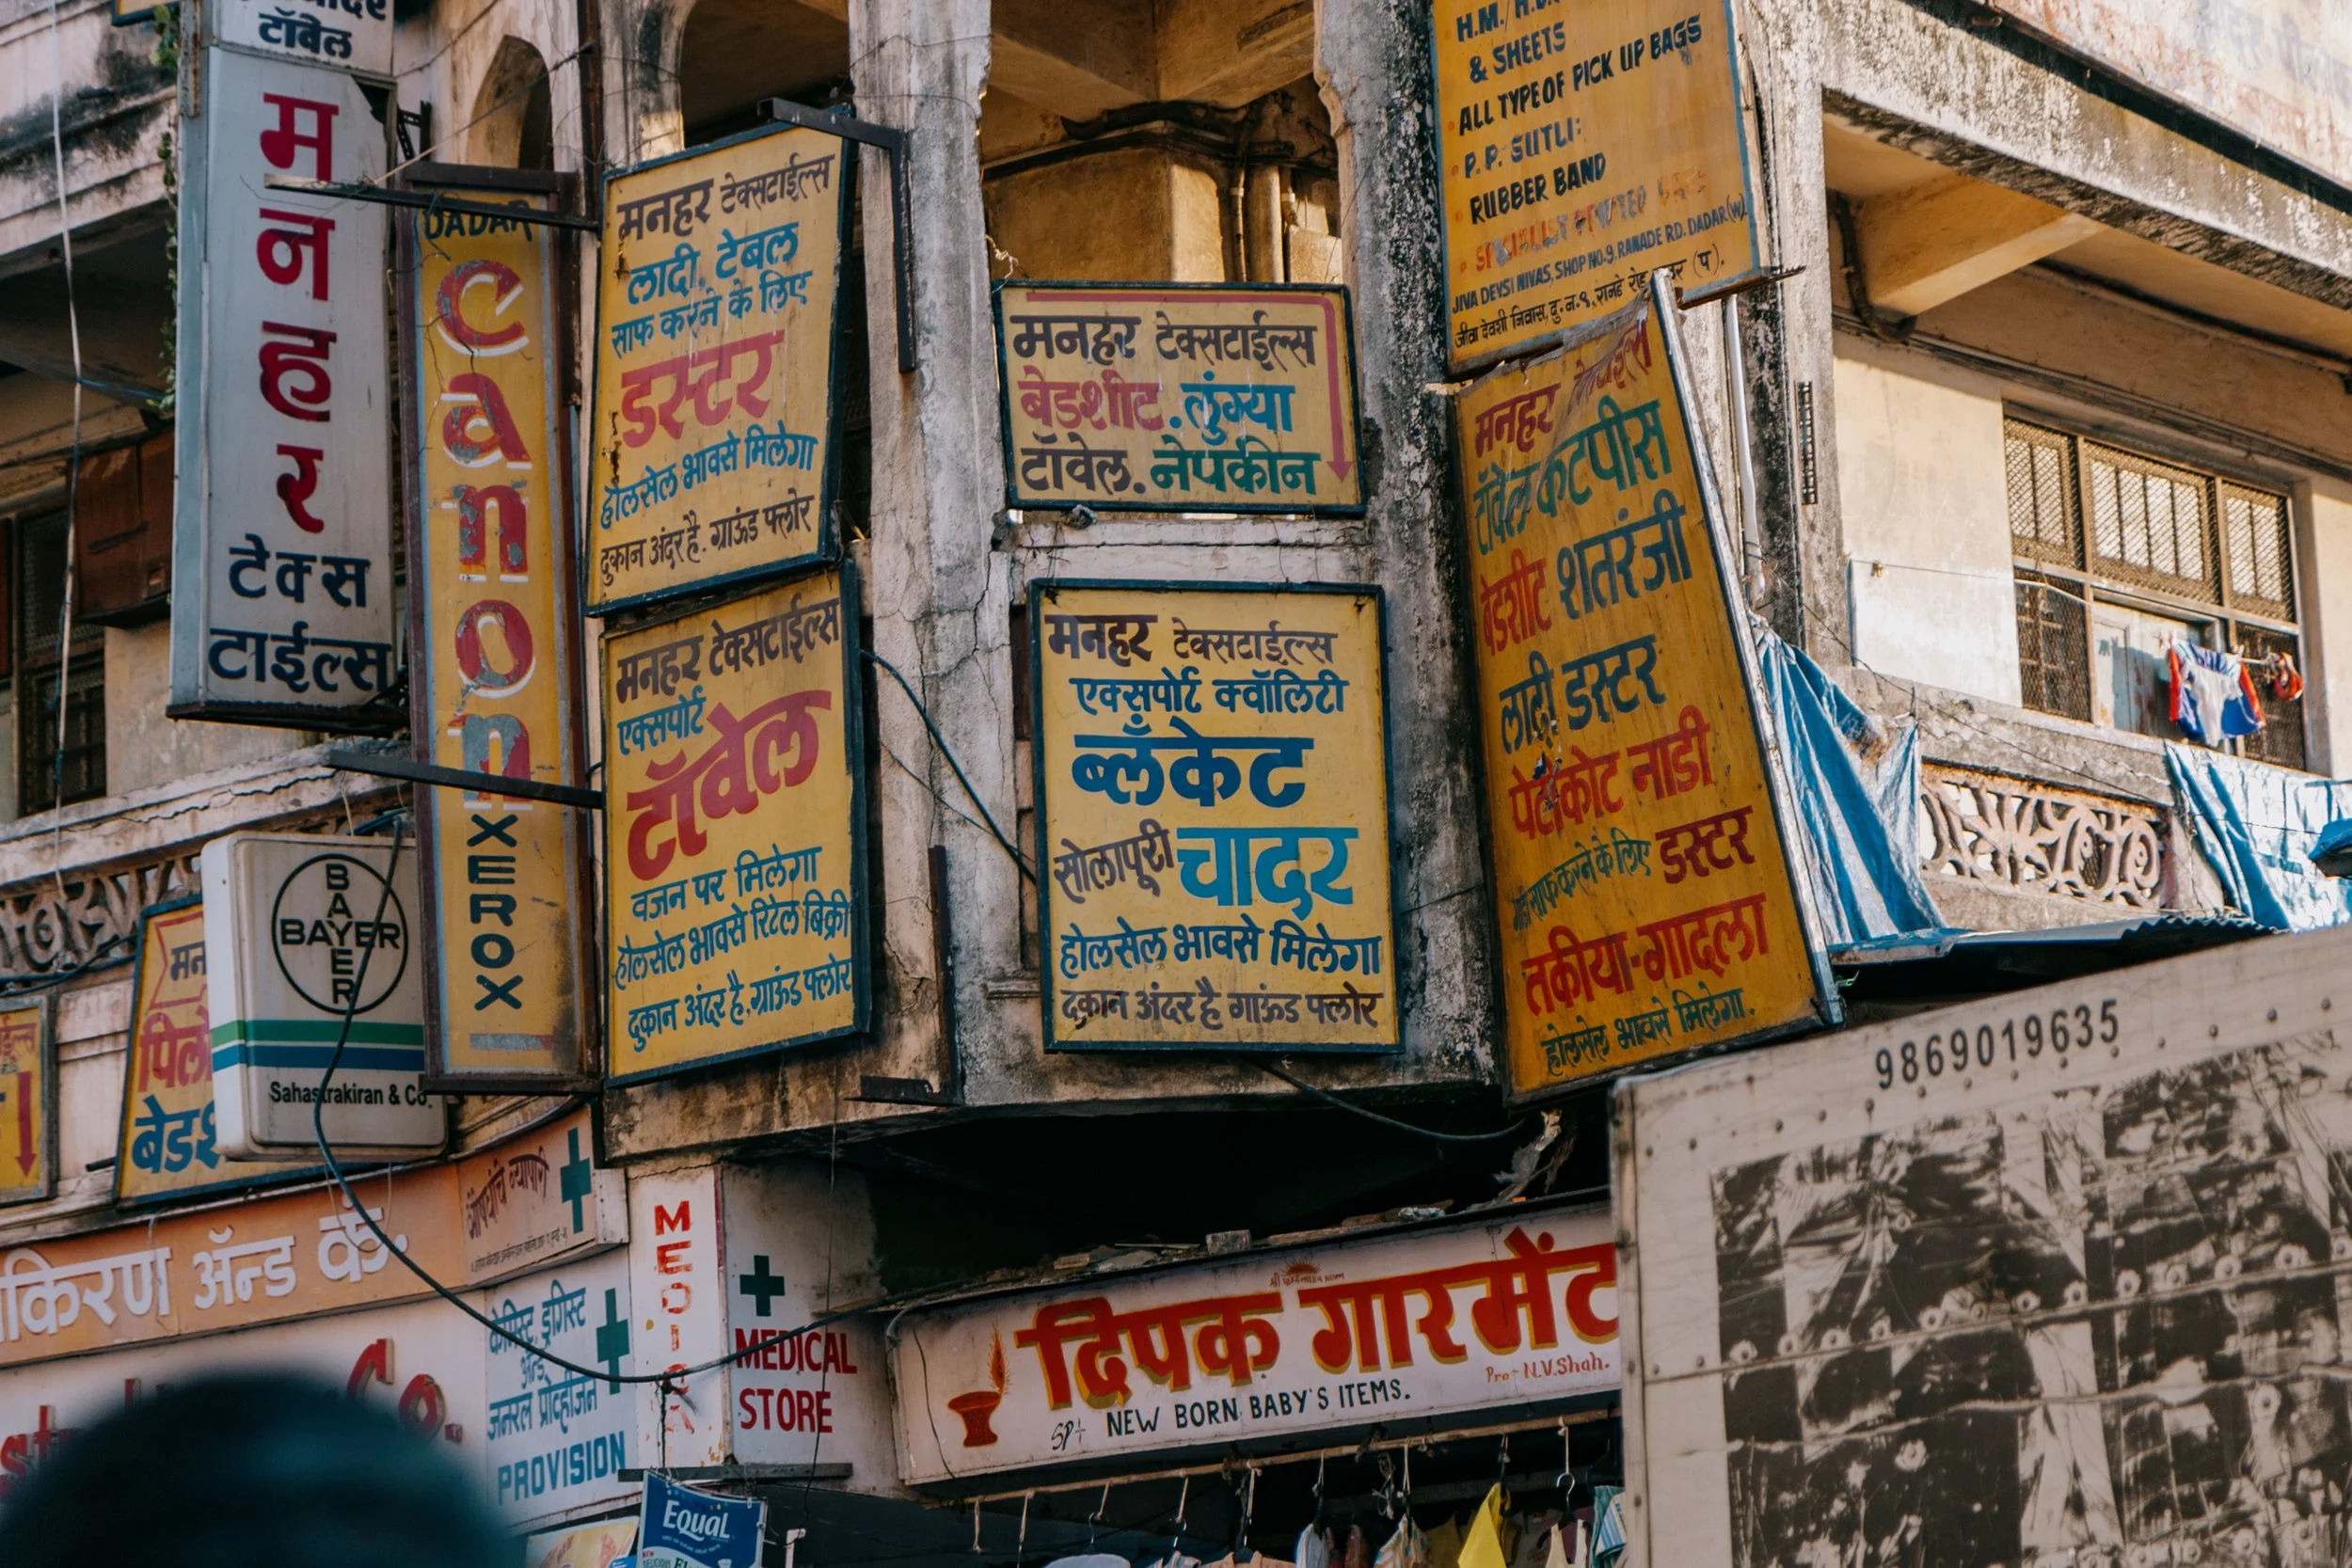 टॉवेल
मनहर
टेक्स
टाईल्स
DADAR
canon
XEROX
मनहर टेक्सटाईल्स
लादी, टेबल
साफ करने के लिए
डस्टर
होलसेल भावसे मिलेगा
दुकान अंदर है. ग्राऊंड फ्लोर
मनहर टेक्सटाईल्स
एक्सपोर्ट
टॉवेल
वजन पर मिलेगा
होलसेल भावसे रिटेल बिक्री
दुकान अंदर है. ग्राऊंड फ्लोर
मनहर टेक्सटाईल्स
बेडशीट. लुंग्या
टॉवेल. नेपकीन
मनहर टेक्सटाईल्स
एक्सपोर्ट क्वॉलिटी
ब्लँकेट
सोलापूरी चादर
होलसेल भावसे मिलेगा
दुकान अंदर है गाऊंड फ्लोर
& SHEETS
ALL TYPE OF PICK UP BAGS
P.P. SUTLI:
RUBBER BAND
SPECIALIST PRINTED BAGS
JIVA DEVSI NIVAS, SHOP NO-9, RANADE RD. DADAR (W)
जीवा देवशी निवास, दु. न. ९, रानडे रोड (प).
मनहर टेक्सटाईल्स
टॉवेल कटपीस
बेडशीट शतरंजी
लादी डस्टर
पेटीकोट नाडी
साफ करने के लिए डस्टर
तकीया-गादला
होलसेल भावसे मिलेगा.
BAYER
BAYER
Sahastrakiran & Co.
बेडश
किरण ॲन्ड कं.
औषधांचे व्यापारी
Co.
केमिस्ट, ड्रगिस्ट
ॲन्ड
जनरल प्रोव्हीजन
PROVISION
MEDICAL
MEDICAL
STORE
Equal
दिपक गारमेंट
Pro- N.V. Shah.
SP+ NEW BORN BABY'S ITEMS.
9869019635